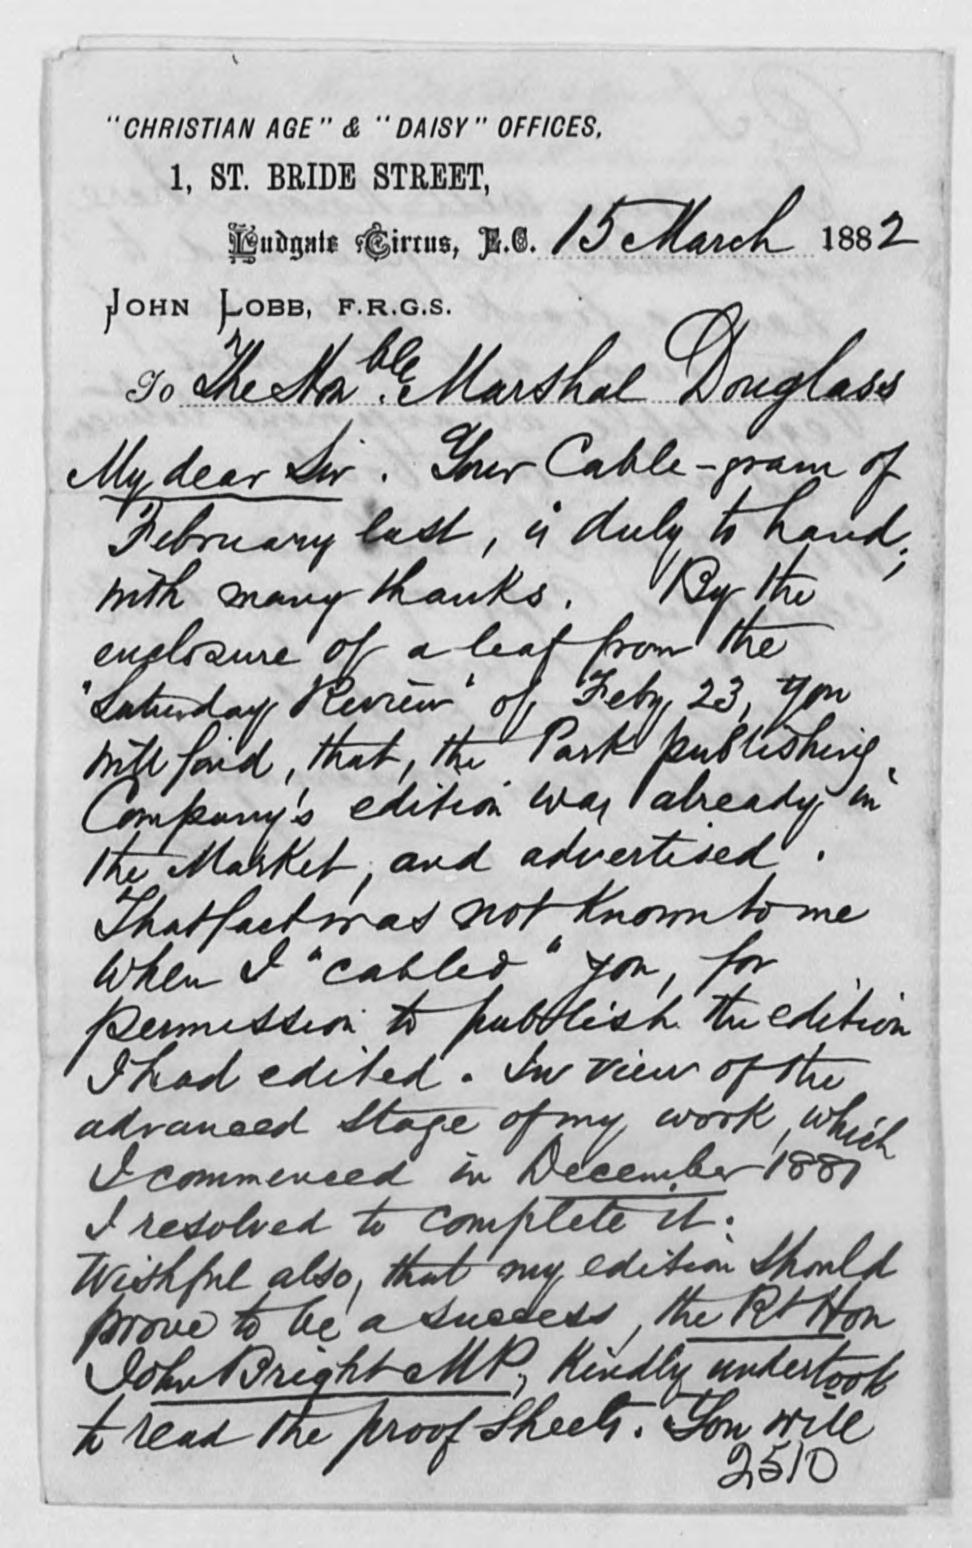 "CHRISTIAN AGE" & "DAISY" OFFICES,
1, ST. BRIDE STREET,
Ludgate Circus, E.C. 15 March 1882
JOHN LOBB, F.R.G.S.
To The Honble. Marshal Douglass
My dear Sir. Your Cable-gram of
February last, is duly to hand;
with many thanks. By the
enclosure of a leaf from the
"Saturday Review" of, Feby, 23, you
will find, that, the Park publishing
Company's edition was already in
the Market, and advertised.
That fact was not known to me
when I "cabled" you, for
permission to publish the edition
I had edited. In view of the
advanced stage of my work, which
I commenced in December 1881
I resolved to complete it.
Wishful also, that my edition should
prove to be a success, the Rt Hon
John Bright MP, Kindly undertook
to read the proof sheets. You will
2510